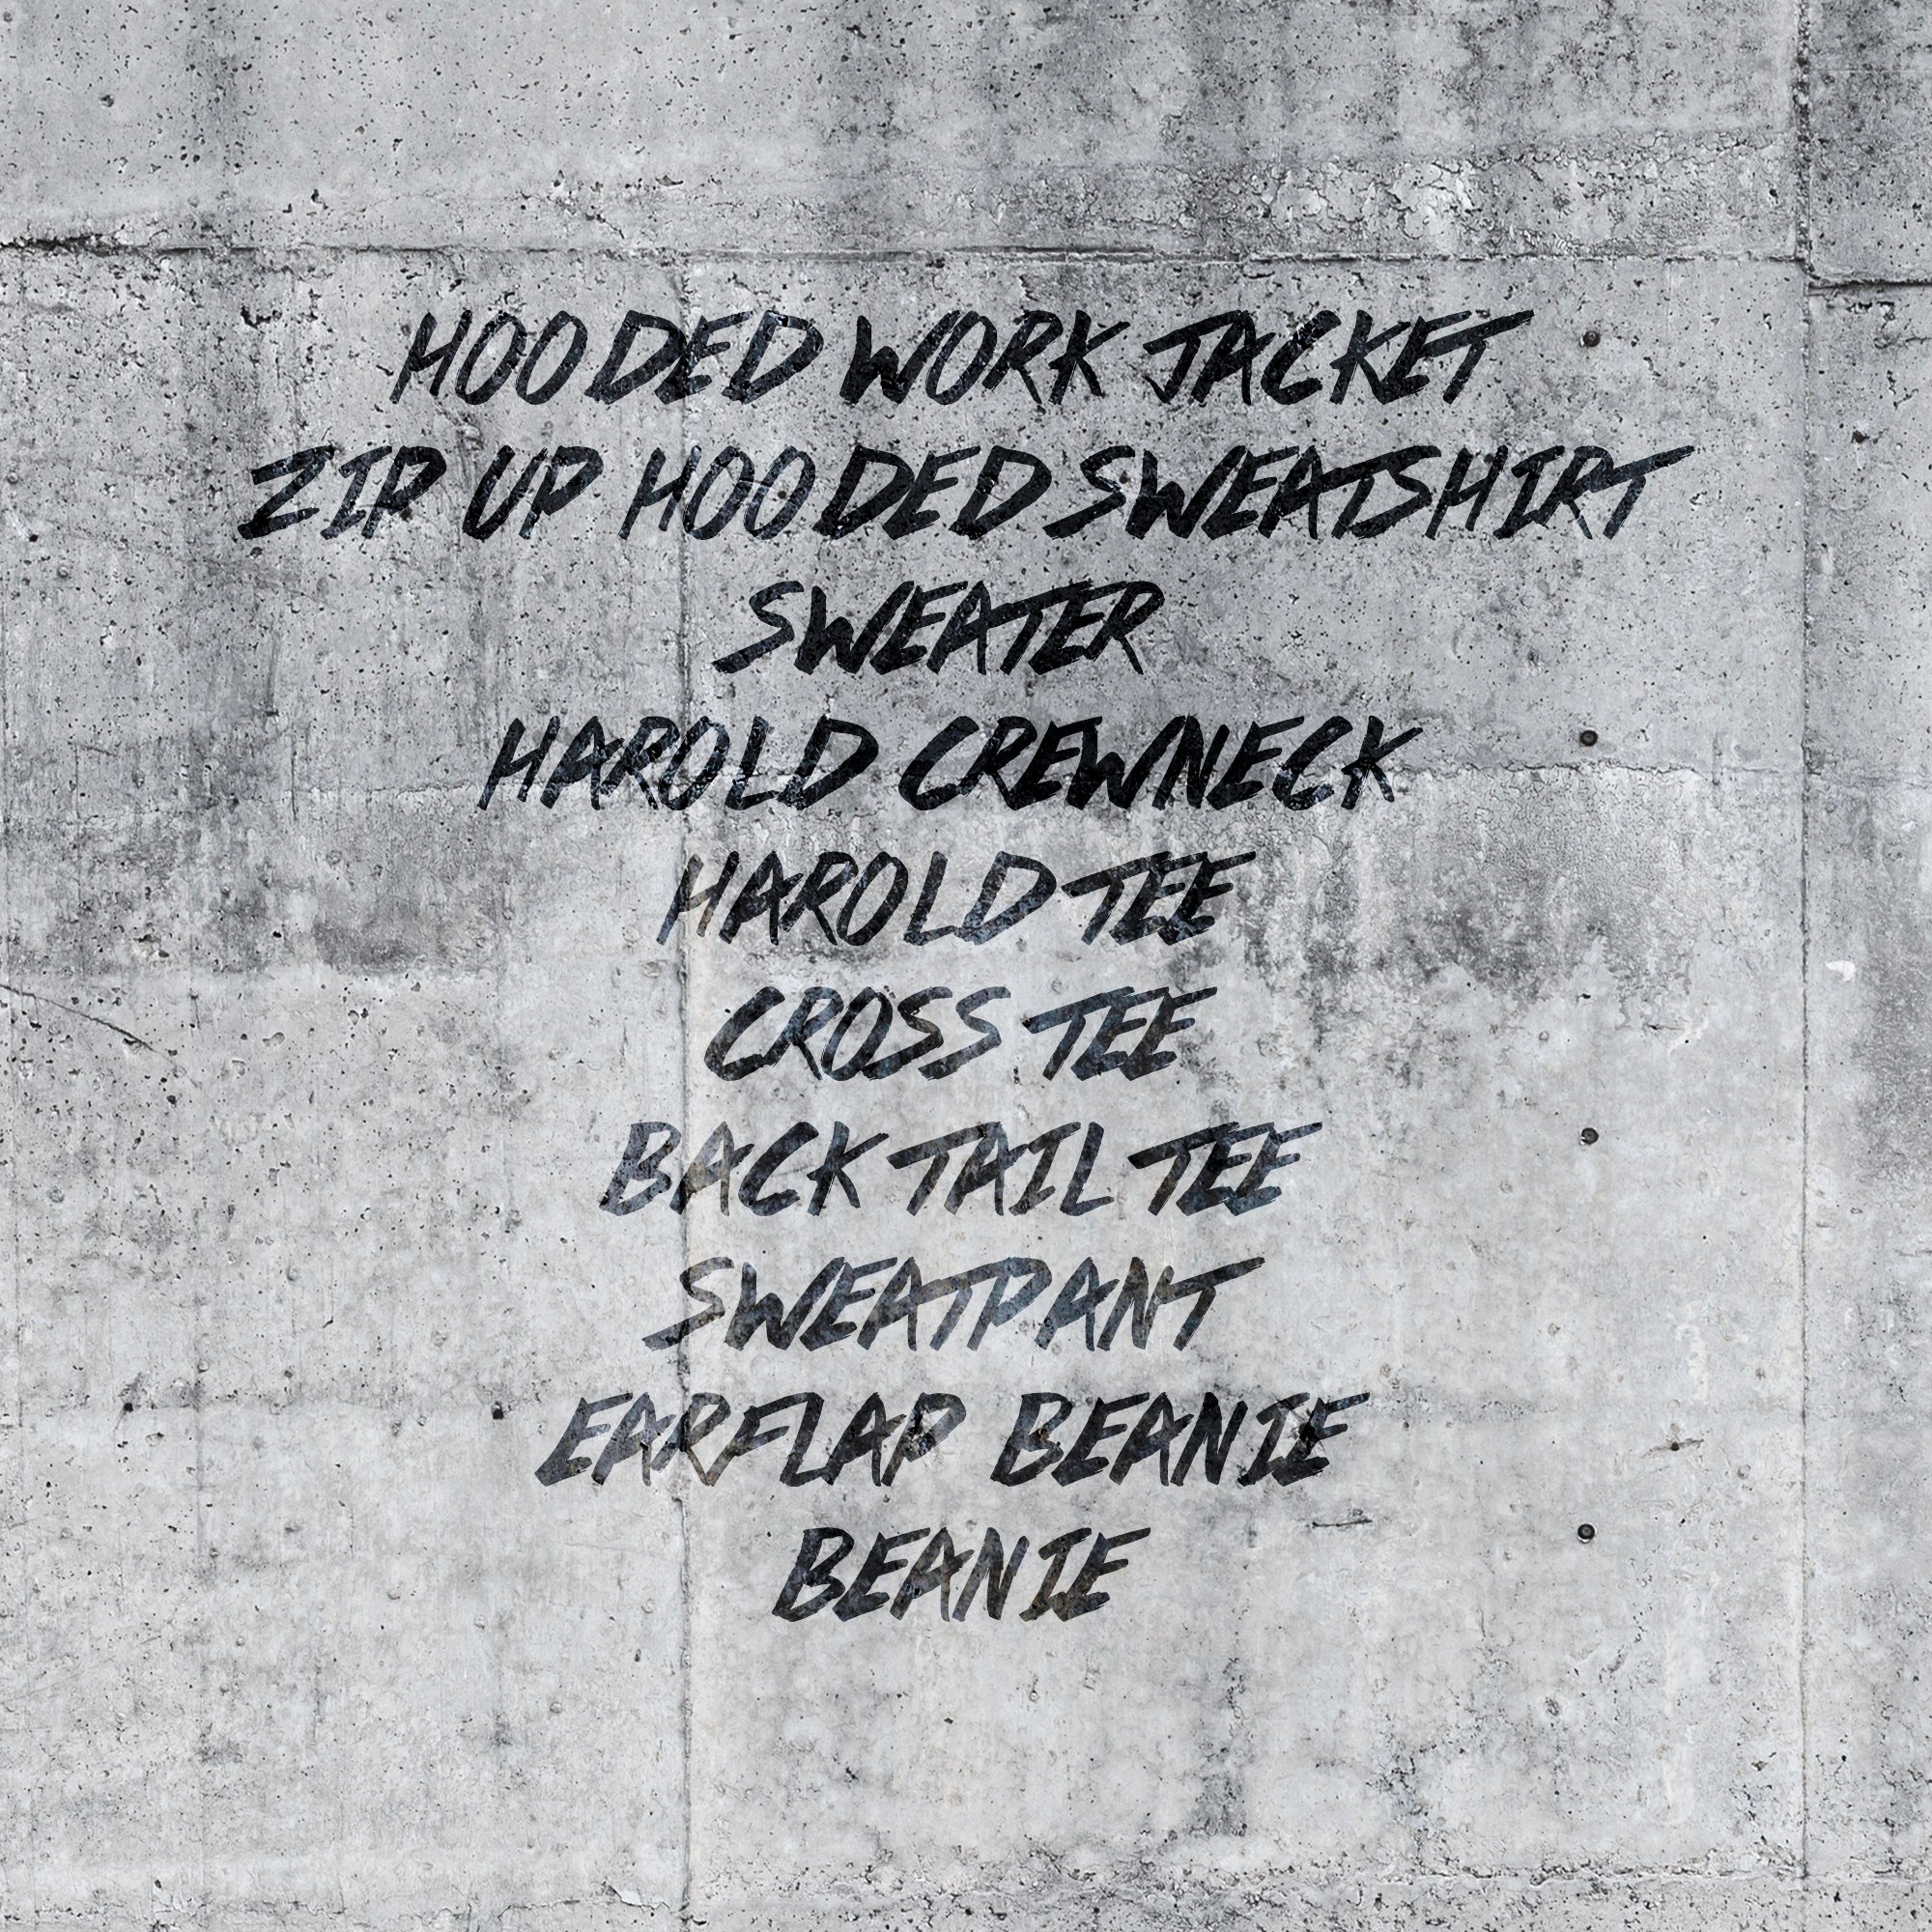 HOODED WORK JACKET
ZIP UP HOODED SWEATSHIRT
SWEATER
HAROLD CREWNECK
HAROLD TEE
CROSS TEE
BACK TAIL TEE
SWEATPANT
EARFLAP BEANIE
BEANIE